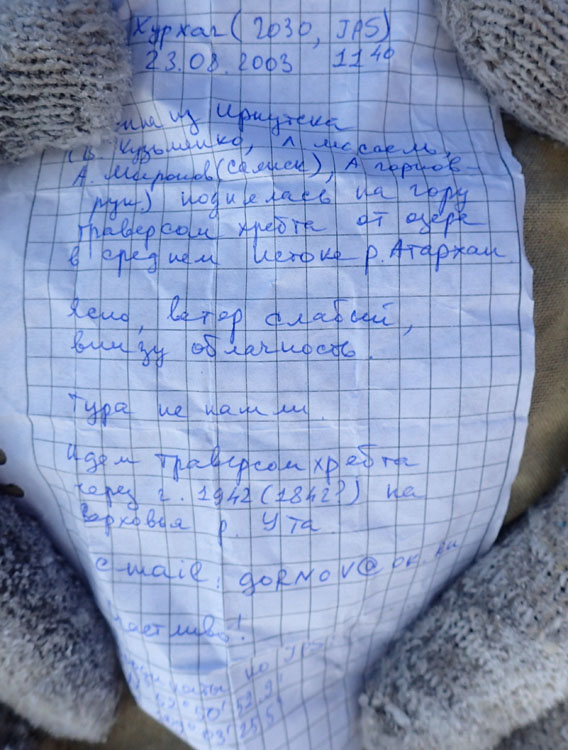 Хурхаг (2030, JPS)
23.08.2003 11 40
из Иркутска
Кузьменко,
А. Миронов (Саянск), А. Горнов-
рук.) поднялась на гору
траверсом хребта от озера
в среднем истоке р. Атархан
Ясно, ветер слабый,
внизу облачность.
Тура не нашли.
Идем траверсом хребта
через г. 1942 (1842?) на
верховья р. Ута
e-mail: gORNOV@
частливо!
по JPS
52.9'